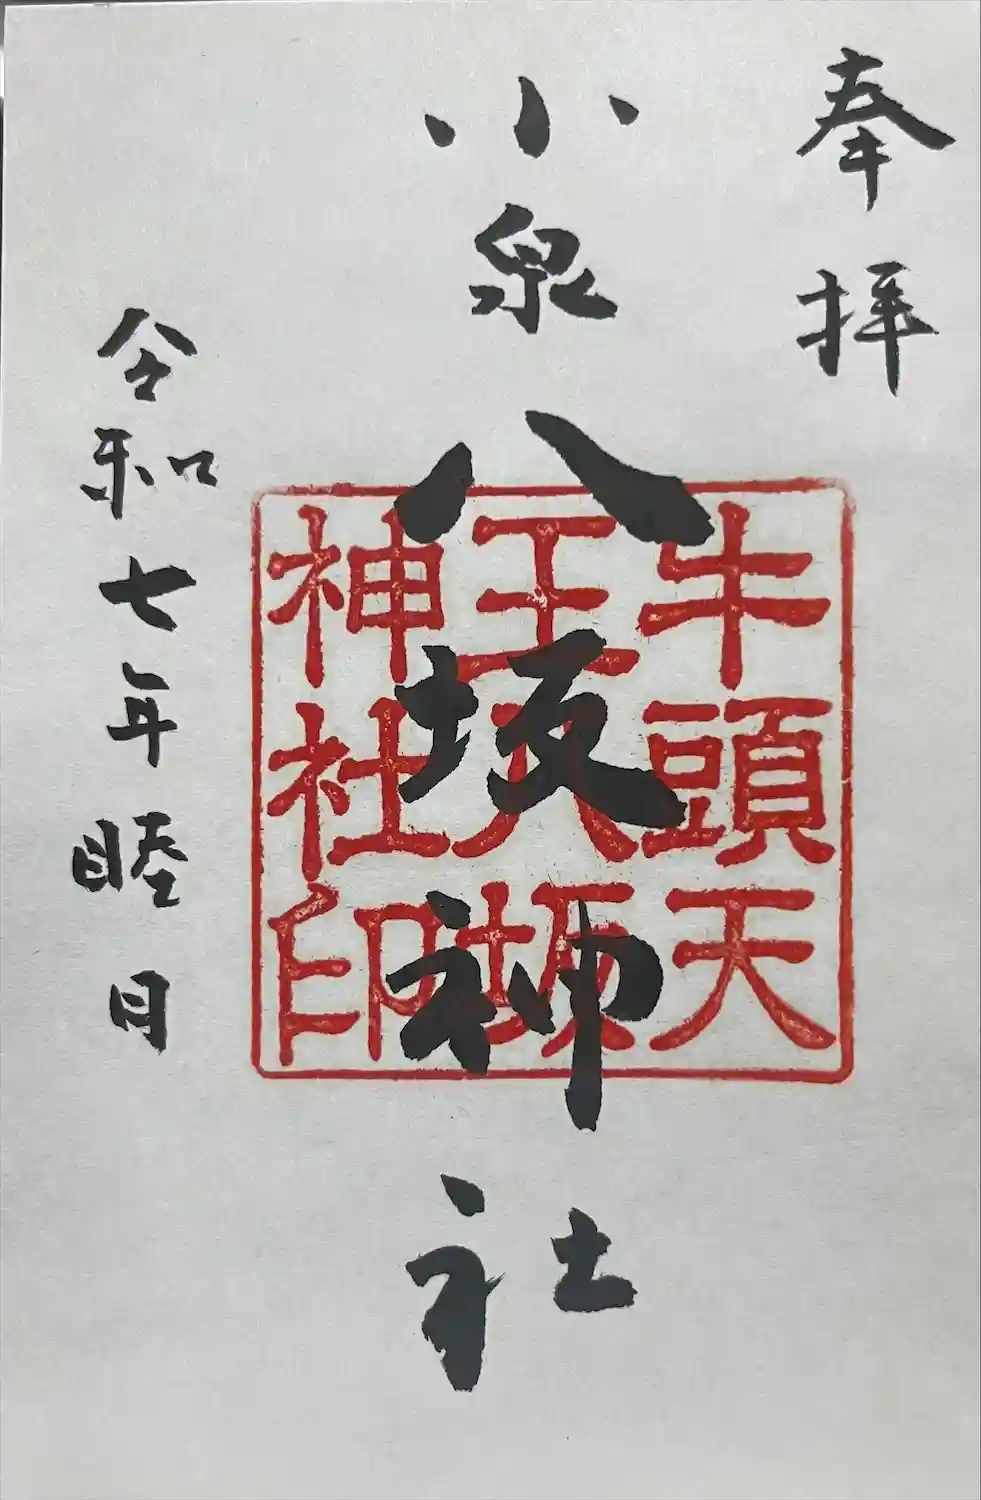 奉拝
小泉八坂神社
令和七年睦月
牛頭天
王八坂
神社印